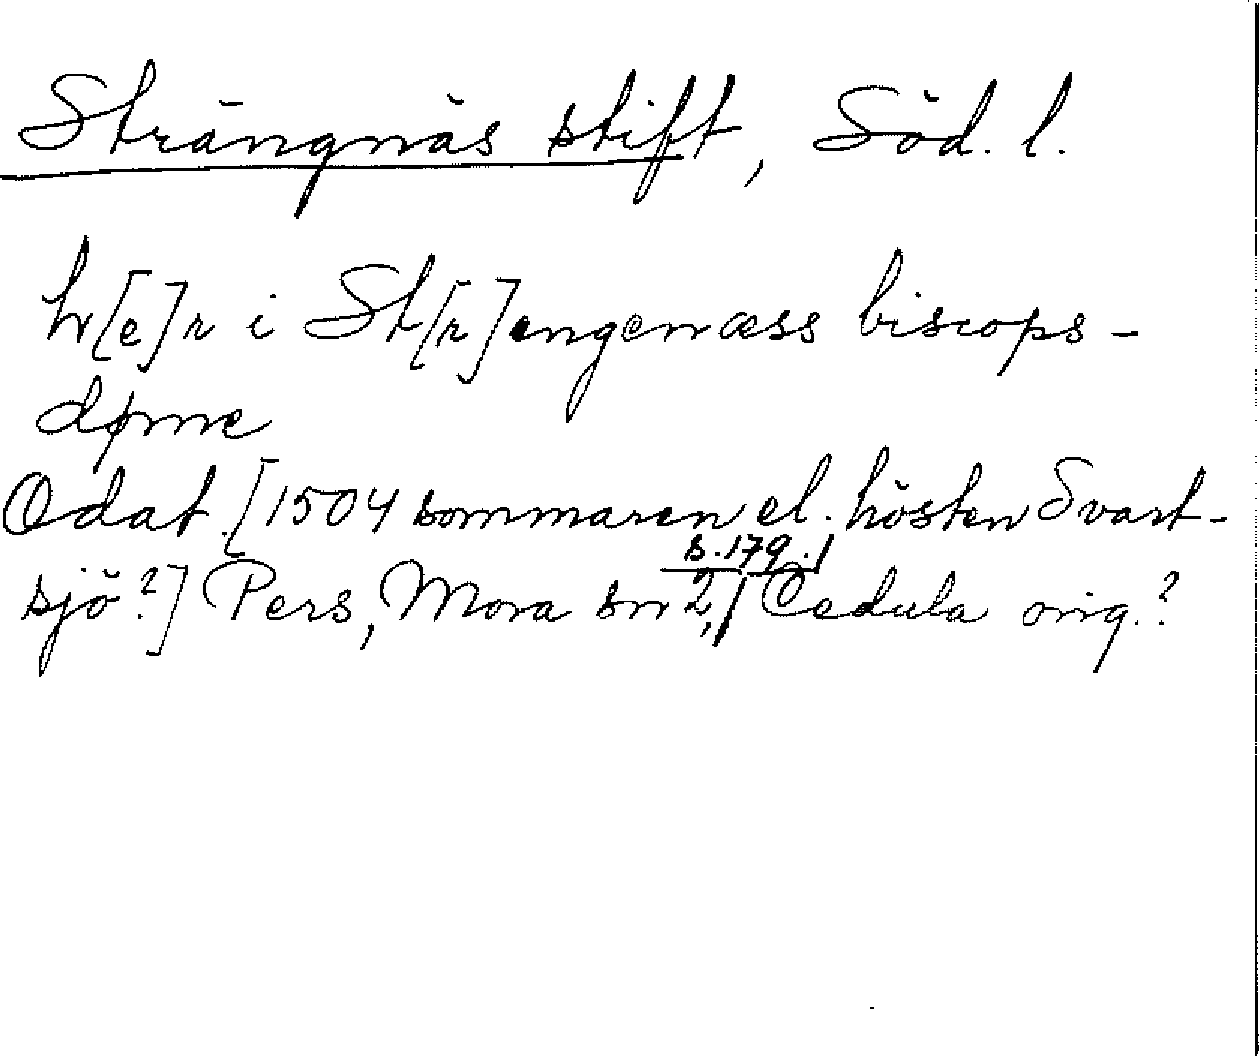 Strängnäs stift, Söd. l.
h[e]r i St[r]engenæss biscops-
døme
Odat. [1504 sommaren el. hösten Svart-
sjö?] Pers, Mora sn 2, s. 179. Cedula orig.?